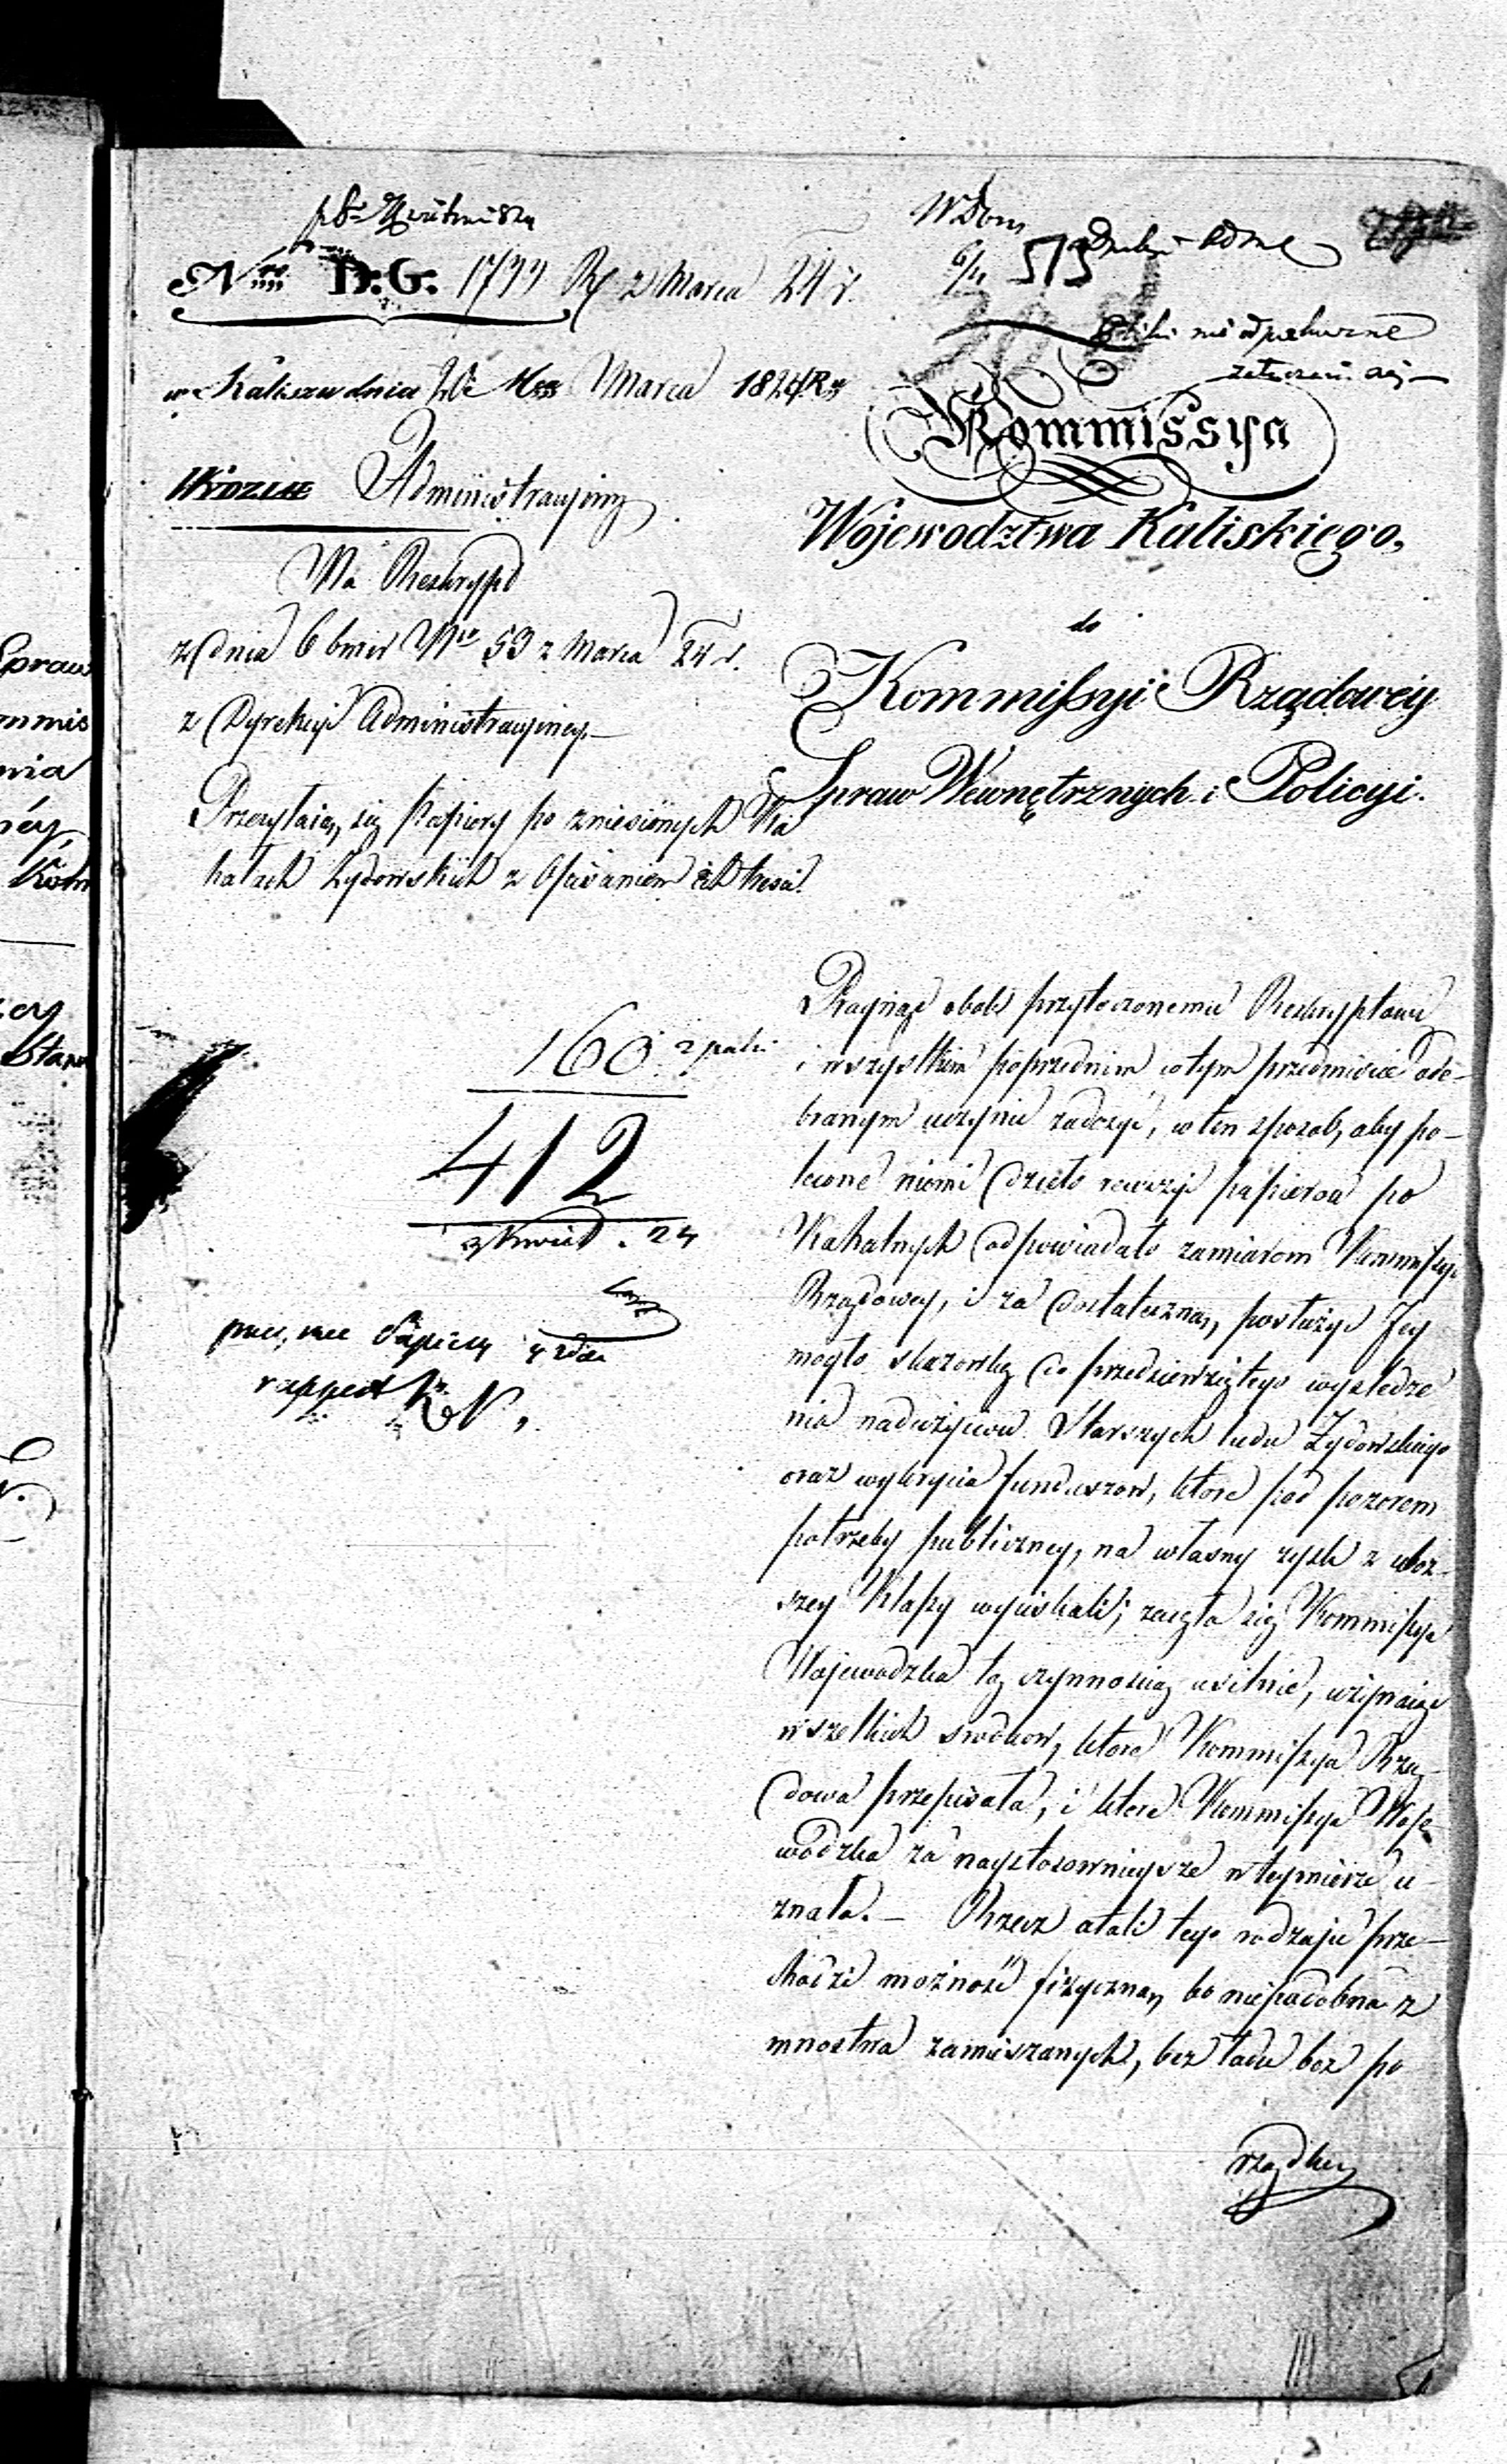 Nro D.G. 1799 Rp 2 Marca 24 r.
w Kaliszu dnia Marca 1824 R.
WYDZIAŁ Administracyiny
Na Reskrypt
z dnia 6 bm i r Nro 53 z Marca 24 r.
z Dyrekcyi Administracyiney.—
Przesyłaią się Papiery po zniesionych Ka
hałach Żydowskich z Opisaniem ich treści.
160.
412
Kwiet. 24
Papiery
rapport
W Dom
573
nie
Kommissya
Województwa Kaliskiego,
do
Kommissyi Rządowey
Spraw Wewnętrznych i Policyi.
Pragnąc obok przytoczonemu Reskryptowi
i wszystkim poprzednim w tym przedmiocie ode-
branym uczynić zadosyć, w ten sposob, aby po-
lecone niemi dzieło rewizyi papierow po
Kahalnych odpowiadało zamiarom Kommissyi
Rządowey, i za dostateczną posłużyć Jey
mogło skazowkę do przedsiewziętego wysledze
nia nadużyciow Starszych ludu Żydowskiego
oraz wykrycia funduszow, ktore pod pozorem
potrzeby publiczney, na własny zysk z uboz-
szey Klassy wyciskali; zaięła się Kommissya
Wojewodzka tą czynnością usilnie, użyiąc
wszelkich srodkow, ktore Kommissya Rzą-
dowa przepisała, i ktore Kommissya Woje
wodzka za naystosownieysze w teymierze u-
znała.— Rzecz atoli tego rodzaju prze-
chodzi możność fizyczną, bo niepodobna z
mnostwa zamieszanych, bez ładu bez po
rządku